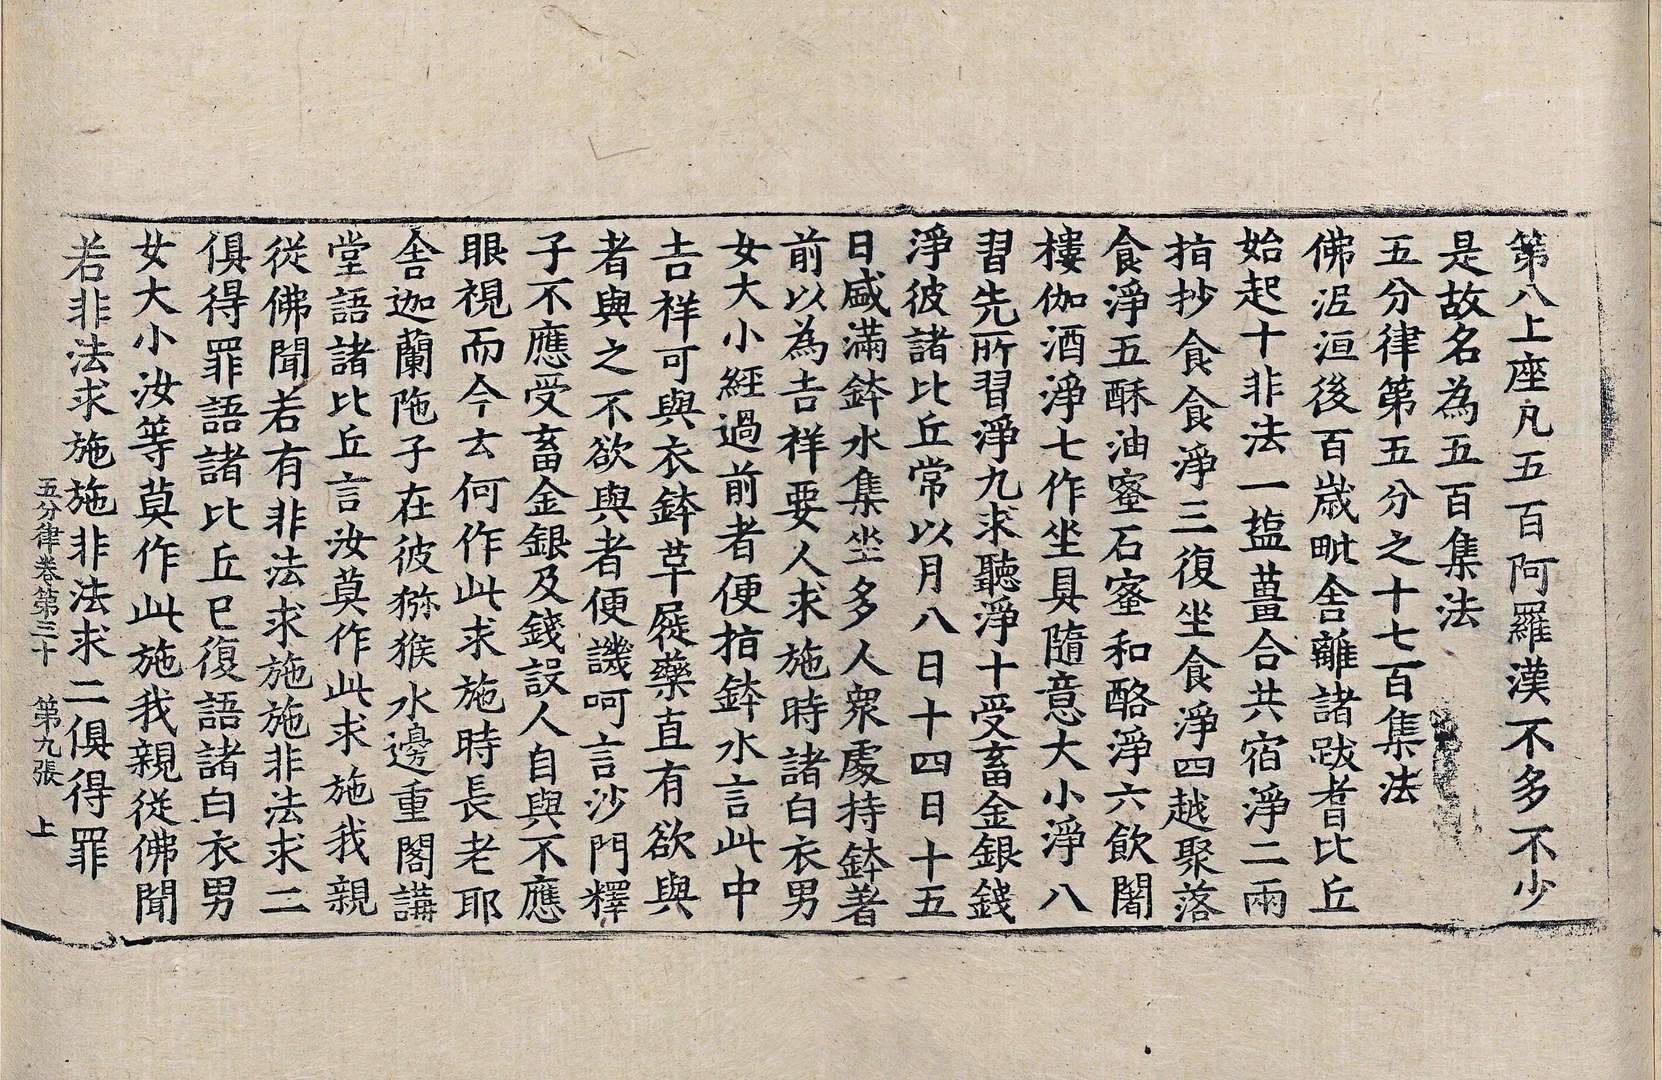 第八上座凡五百阿羅漢不多不少
是故名為五百集法
五分律第五分之十七百集法
佛泥洹後百歲毗舍離諸跋耆比丘
始起十非法一塩薑合共宿淨二兩
指抄食食淨三復坐食淨四越聚落
食淨五酥油蜜石蜜和酪淨六飲闍
樓伽酒淨七作坐具隨意大小淨八
習先所習淨九求聽淨十受畜金銀錢
淨彼諸比丘常以月八日十四日十五
日盛滿鉢水集坐多人眾處持鉢著
前以為吉祥要人求施時諸白衣男
女大小經過前者便指鉢水言此中
吉祥可與衣鉢草屣藥直有欲與
者與之不欲與者便譏呵言沙門釋
子不應受畜金銀及錢設人自與不應
眼視而今云何作此求施時長老耶
舍迦蘭陁子在彼獼猴水邊重閣講
堂語諸比丘言汝莫作此求施我親
從佛聞若有非法求施施非法求二
俱得罪語諸比丘已復語諸白衣男
女大小汝等莫作此施我親從佛聞
若非法求施施非法求二俱得罪
五分律卷第三十 第九張 上